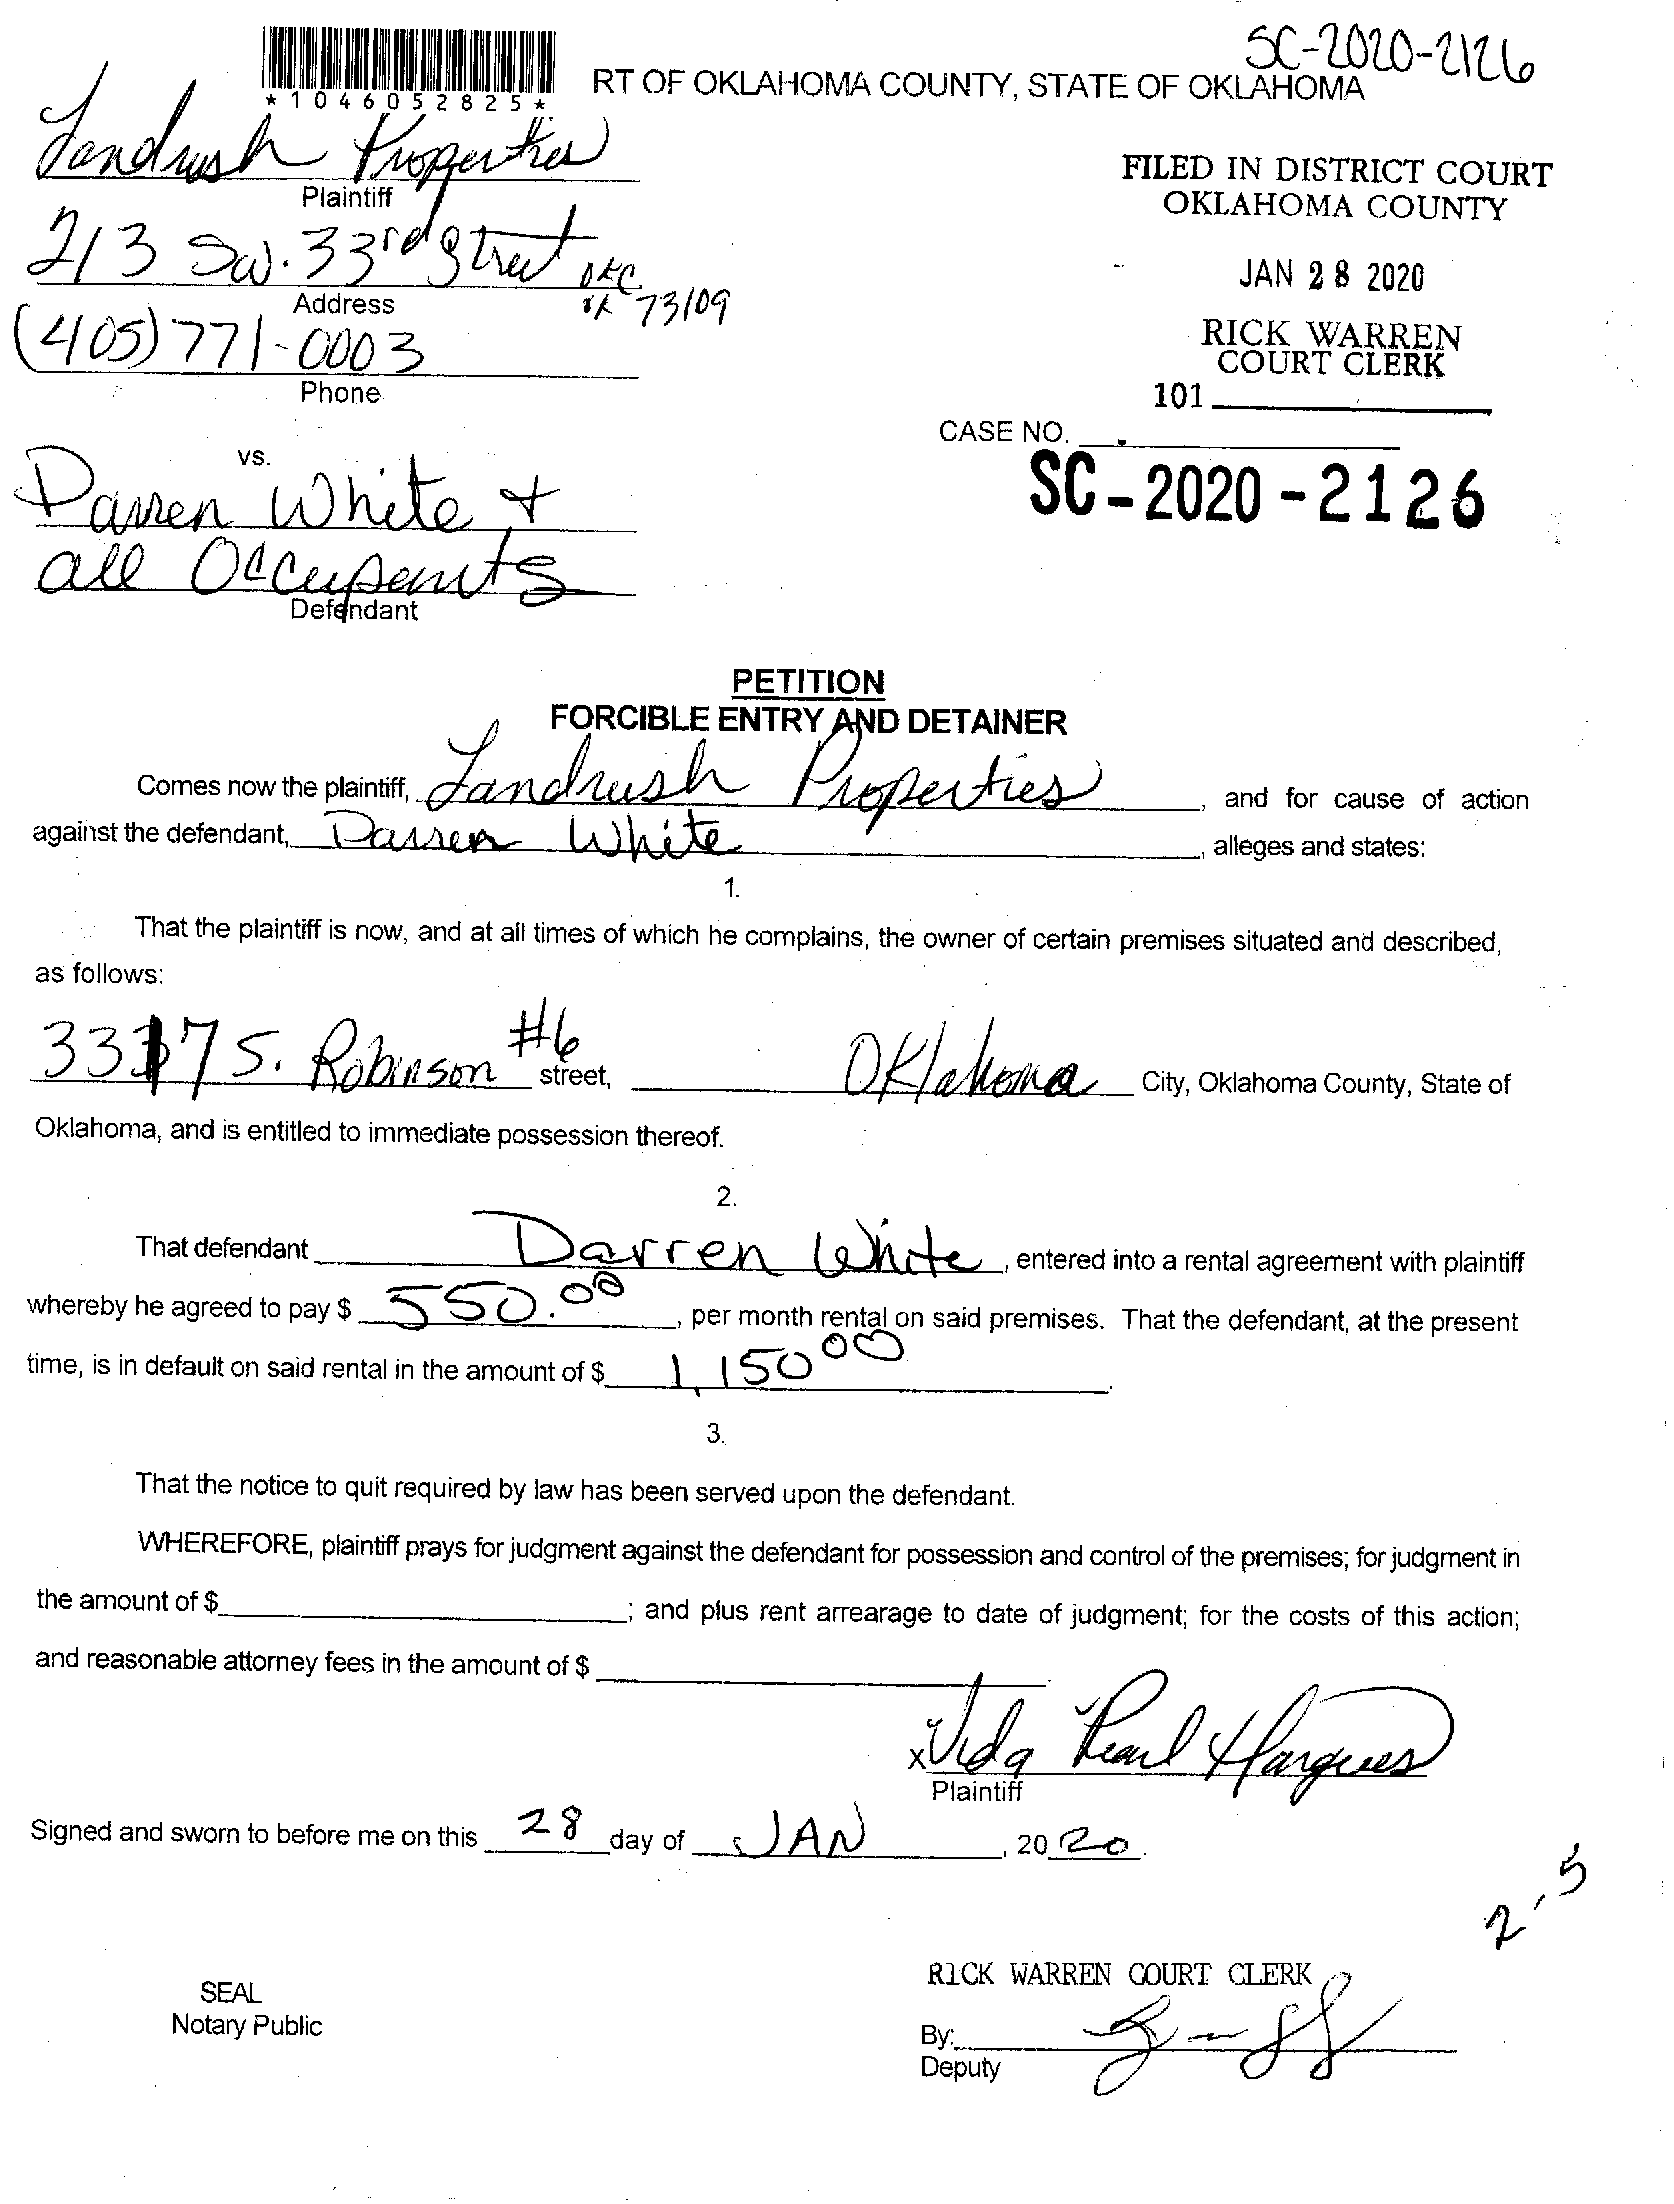 SC-2020-2126
*1046052825*
RT OF OKLAHOMA COUNTY, STATE OF OKLAHOMA
Landrush Properties
Plaintiff
213 SW. 33rd Street OKC
OK 73109
Address
(405) 771-0003
Phone
FILED IN DISTRICT COURT
OKLAHOMA COUNTY
JAN 28 2020
RICK WARREN
COURT CLERK
101
CASE NO.
SC-2020-2126
vs.
Darren White +
all Occupants
Defendant
PETITION
FORCIBLE ENTRY AND DETAINER
Comes now the plaintiff, Landrush Properties, and for cause of action
against the defendant, Darren White, alleges and states:
1.
That the plaintiff is now, and at all times of which he complains, the owner of certain premises situated and described,
as follows:
3317 S. Robinson #6 street, Oklahoma City, Oklahoma County, State of
Oklahoma, and is entitled to immediate possession thereof.
2.
That defendant Darren White, entered into a rental agreement with plaintiff
whereby he agreed to pay $ 550.00, per month rental on said premises. That the defendant, at the present
time, is in default on said rental in the amount of $ 1,150 00.
3.
That the notice to quit required by law has been served upon the defendant.
WHEREFORE, plaintiff prays for judgment against the defendant for possession and control of the premises; for judgment in
the amount of $ ; and plus rent arrearage to date of judgment; for the costs of this action;
and reasonable attorney fees in the amount of $
x Vida Pearl Hargues
Plaintiff
Signed and sworn to before me on this 28 day of JAN, 20 20.
2-5
SEAL
Notary Public
RICK WARREN COURT CLERK
By:
Deputy